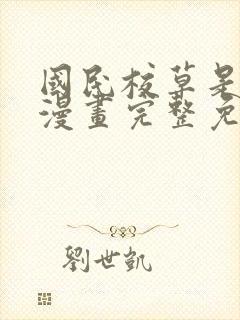 國民校草是
漫畫完整免
劉世凱